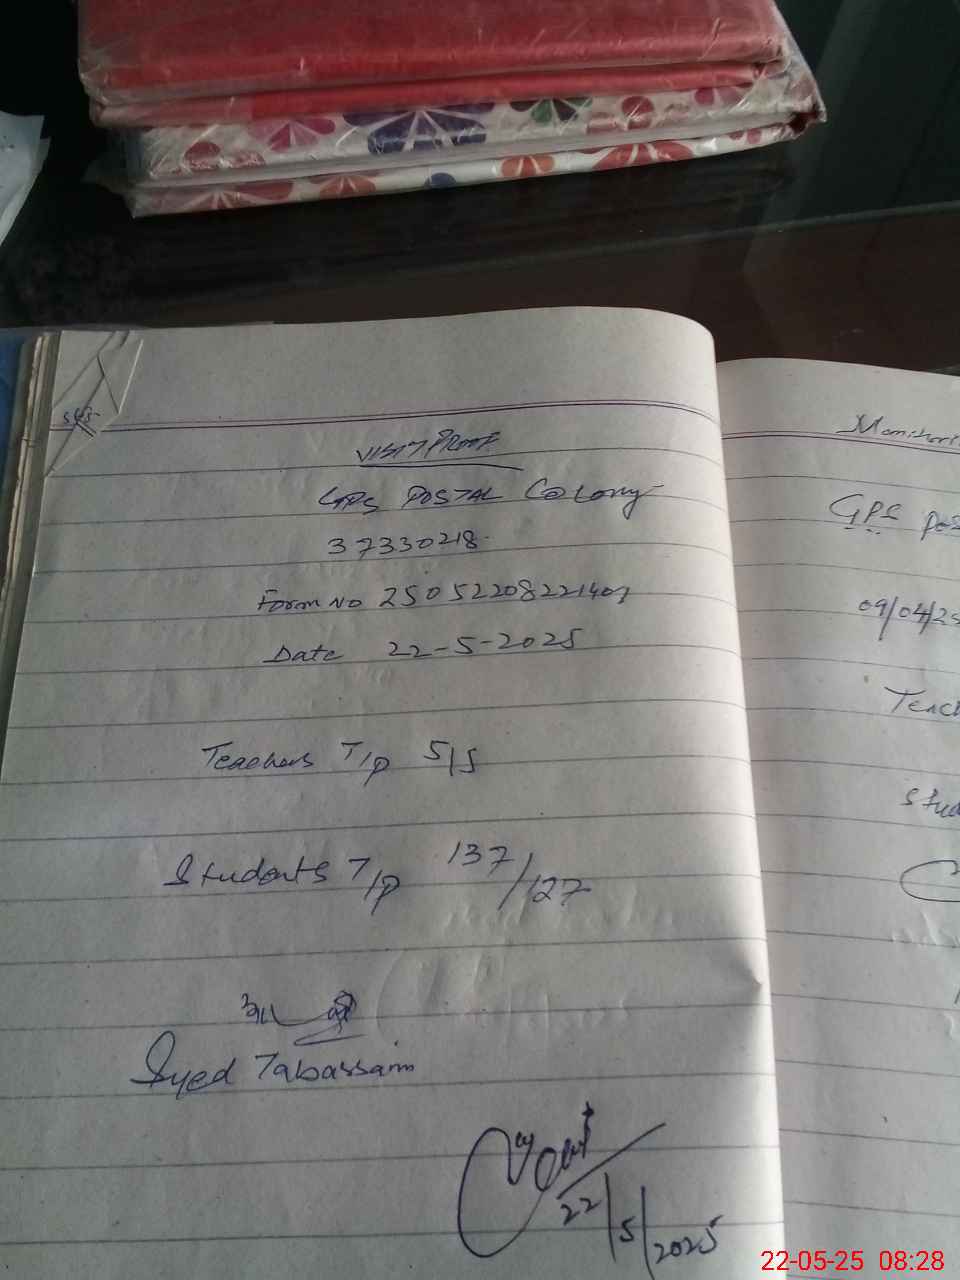 VISIT PROOF
GPS POSTAL Colony
37330218
Form No 25052208221407
Date 22-5-2025
Teachers T/p 5/5
Students T/p 137/127
Syed Tabassam
22/5/2025
GPS
09/04/25
22-05-25 08:28